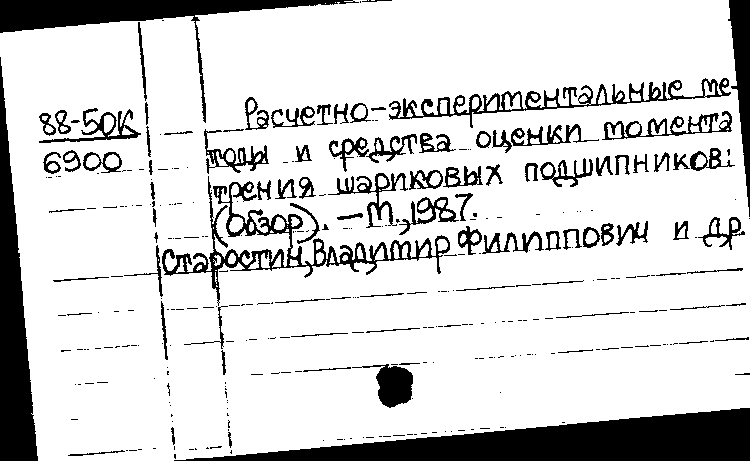 88-50К
6900
Расчетно-экспериментальные ме-
тоды и средства оценки момента
трения шариковых подшипников:
(Обзор). — М., 1987.
Старостин, Владимир Филиппович и др.